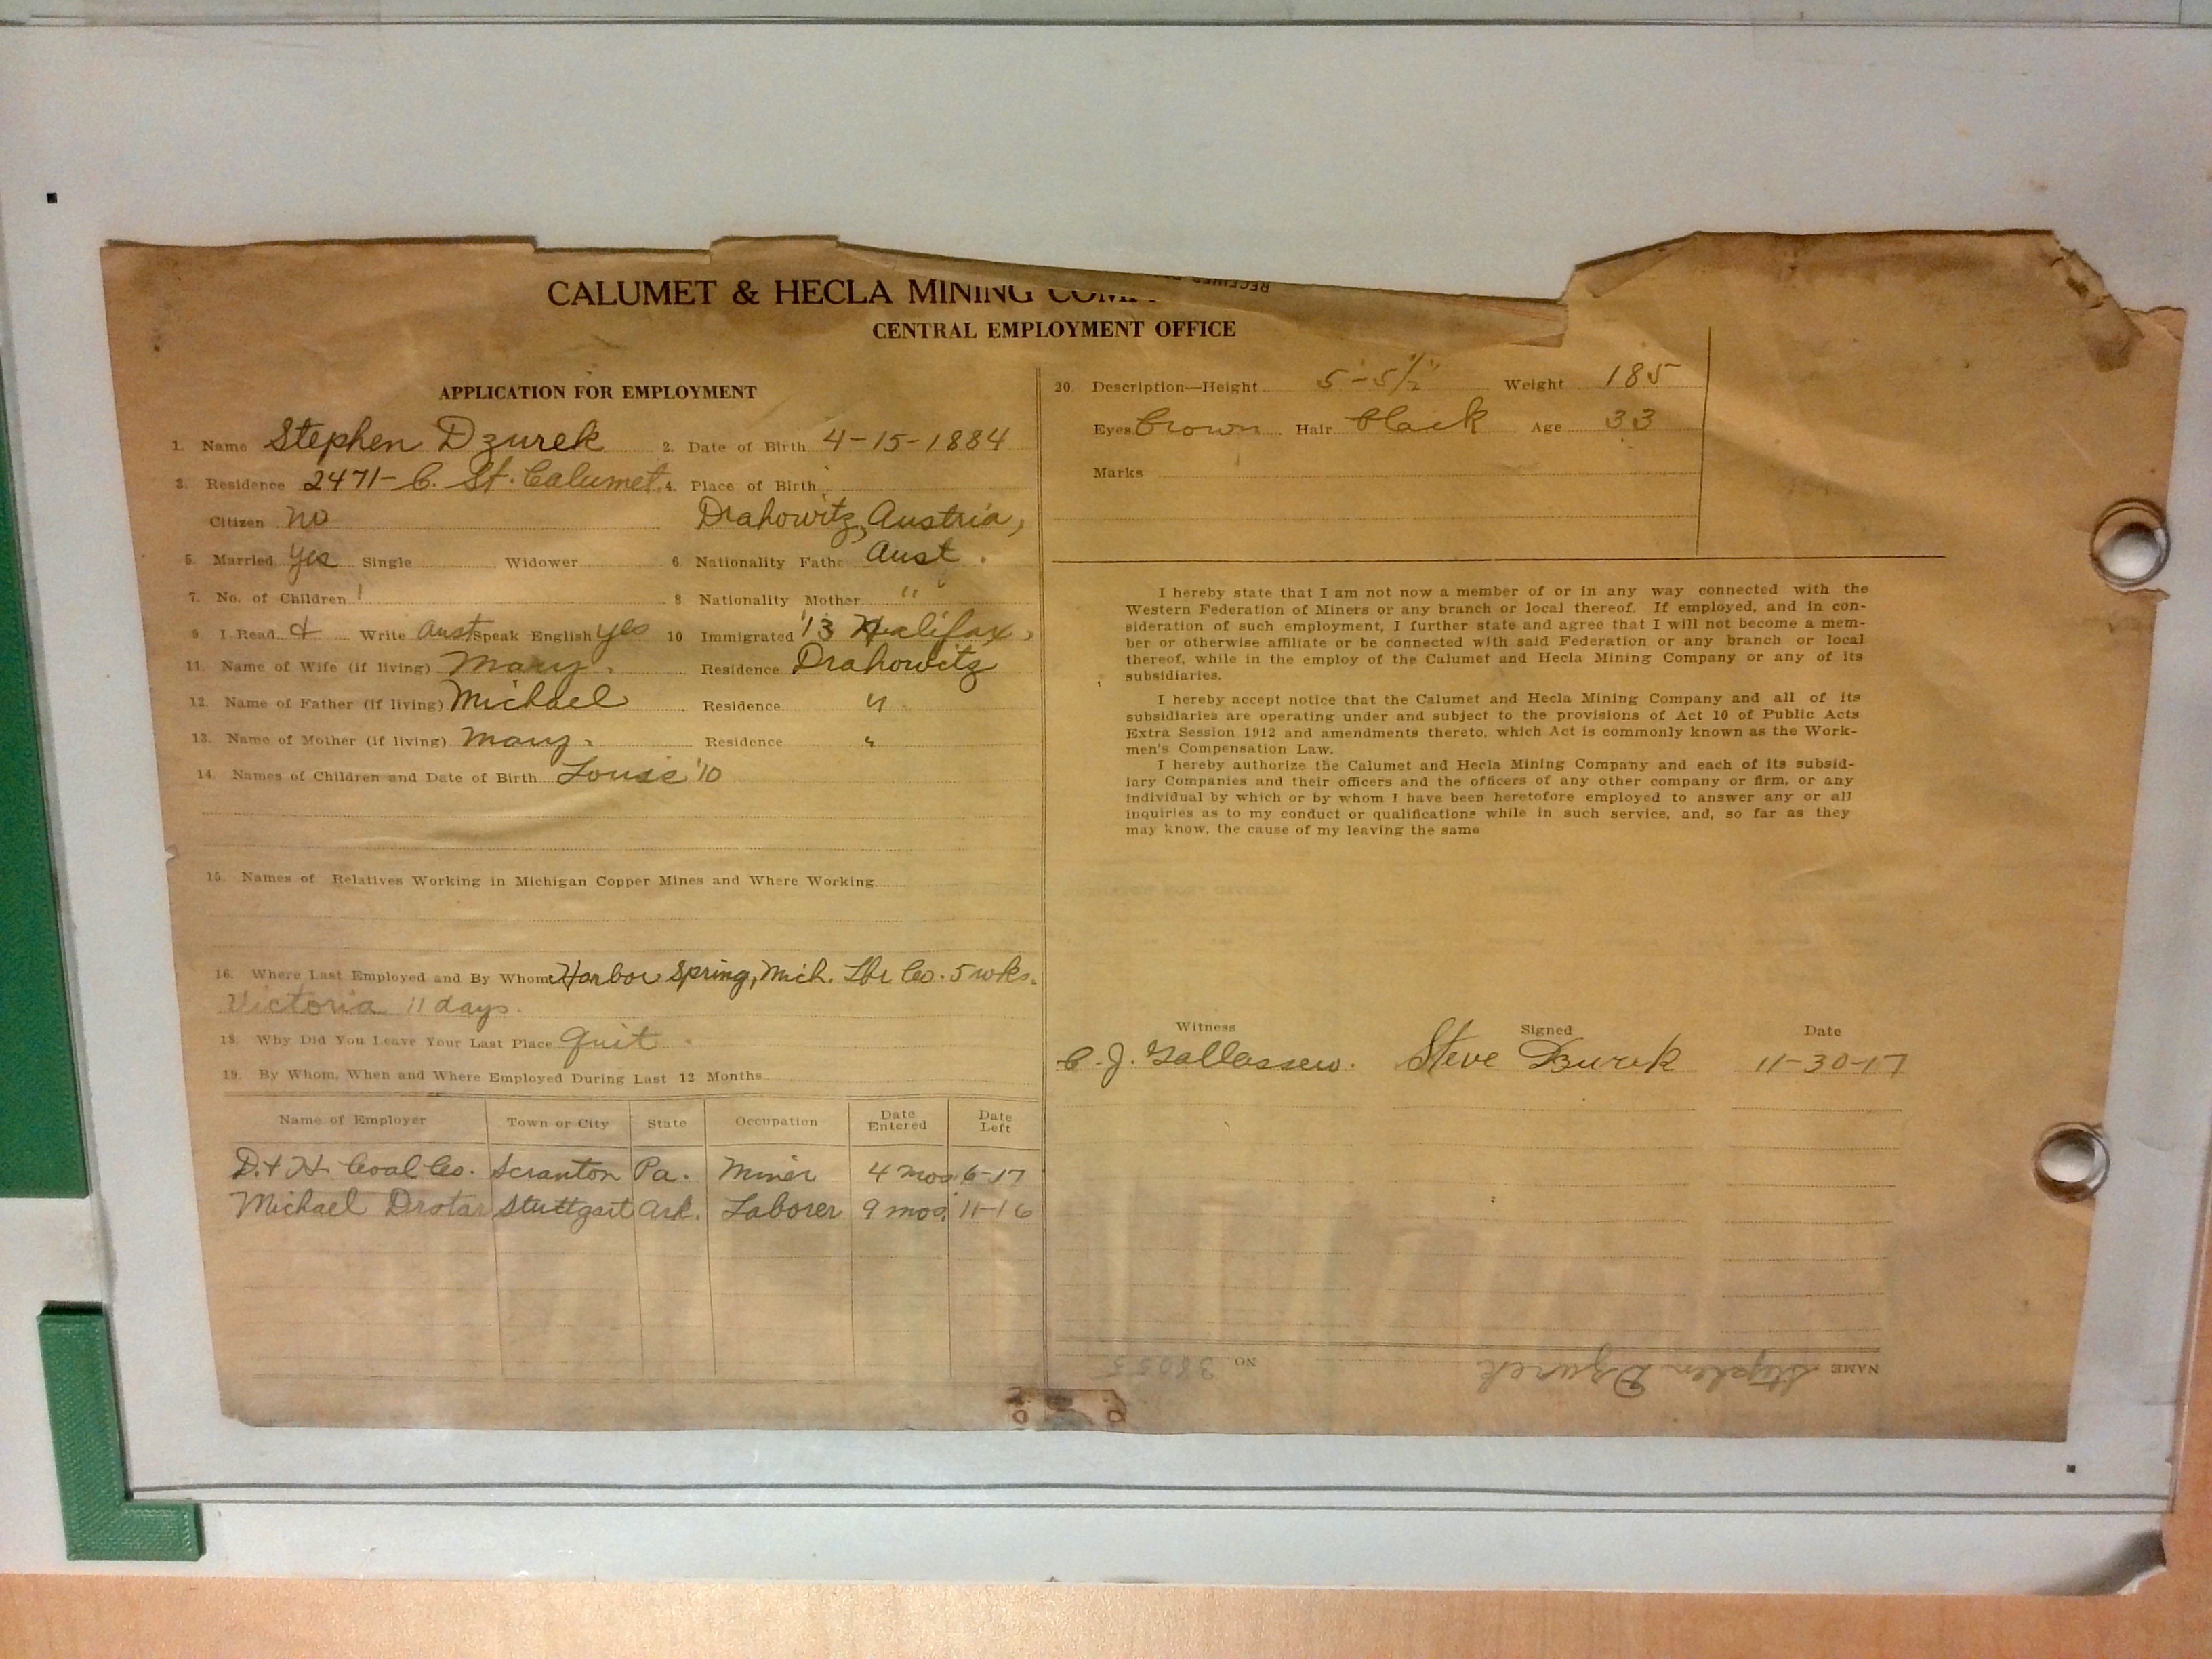 CALUMET & HECLA MINING
CENTRAL EMPLOYMENT OFFICE
APPLICATION FOR EMPLOYMENT
1. Name Stephen Dzurek 2. Date of Birth 4-15-1884
3. Residence 2471- C. St. Calumet. 4. Place of Birth
Citizen no Drahowitz, Austria,
5. Married yes Single Widower 6. Nationality Fathe Aust.
7. No. of Children 1 8 Nationality Mother "
9 I Read & Write Aust Speak English yes 10 Immigrated '13 Halifax,
11. Name of Wife (if living) Mary. Residence Drahowitz
12. Name of Father (if living) Michael Residence "
13. Name of Mother (if living) Mary. Residence "
14. Names of Children and Date of Birth Louise '10
15. Names of Relatives Working in Michigan Copper Mines and Where Working
16. Where Last Employed and By Whom Harbor Spring, Mich. Lbr. Co. 5 wks.
Victoria 11 days.
18. Why Did You Leave Your Last Place quit
19. By Whom, When and Where Employed During Last 12 Months
Name of Employer Town or City State Occupation Date Entered Date Left
D. & H. Coal Co. Scranton Pa. Miner 4 mos. 6-17
Michael Drotar Stuttgart Ark. Laborer 9 mos. 11-16
RECEIVED
20. Description—Height 5'-5 1/2" Weight 185
Eyes brown Hair black Age 33
Marks
I hereby state that I am not now a member of or in any way connected with the
Western Federation of Miners or any branch or local thereof. If employed, and in con-
sideration of such employment, I further state and agree that I will not become a mem-
ber or otherwise affiliate or be connected with said Federation or any branch or local
thereof, while in the employ of the Calumet and Hecla Mining Company or any of its
subsidiaries.
I hereby accept notice that the Calumet and Hecla Mining Company and all of its
subsidiaries are operating under and subject to the provisions of Act 10 of Public Acts
Extra Session 1912 and amendments thereto, which Act is commonly known as the Work-
men's Compensation Law.
I hereby authorize the Calumet and Hecla Mining Company and each of its subsid-
iary Companies and their officers and the officers of any other company or firm, or any
individual by which or by whom I have been heretofore employed to answer any or all
inquiries as to my conduct or qualifications while in such service, and, so far as they
may know, the cause of my leaving the same
Witness Signed Date
C. J. Steve Dzurek 11-30-17
NAME Stephen Dzurek NO. 38055